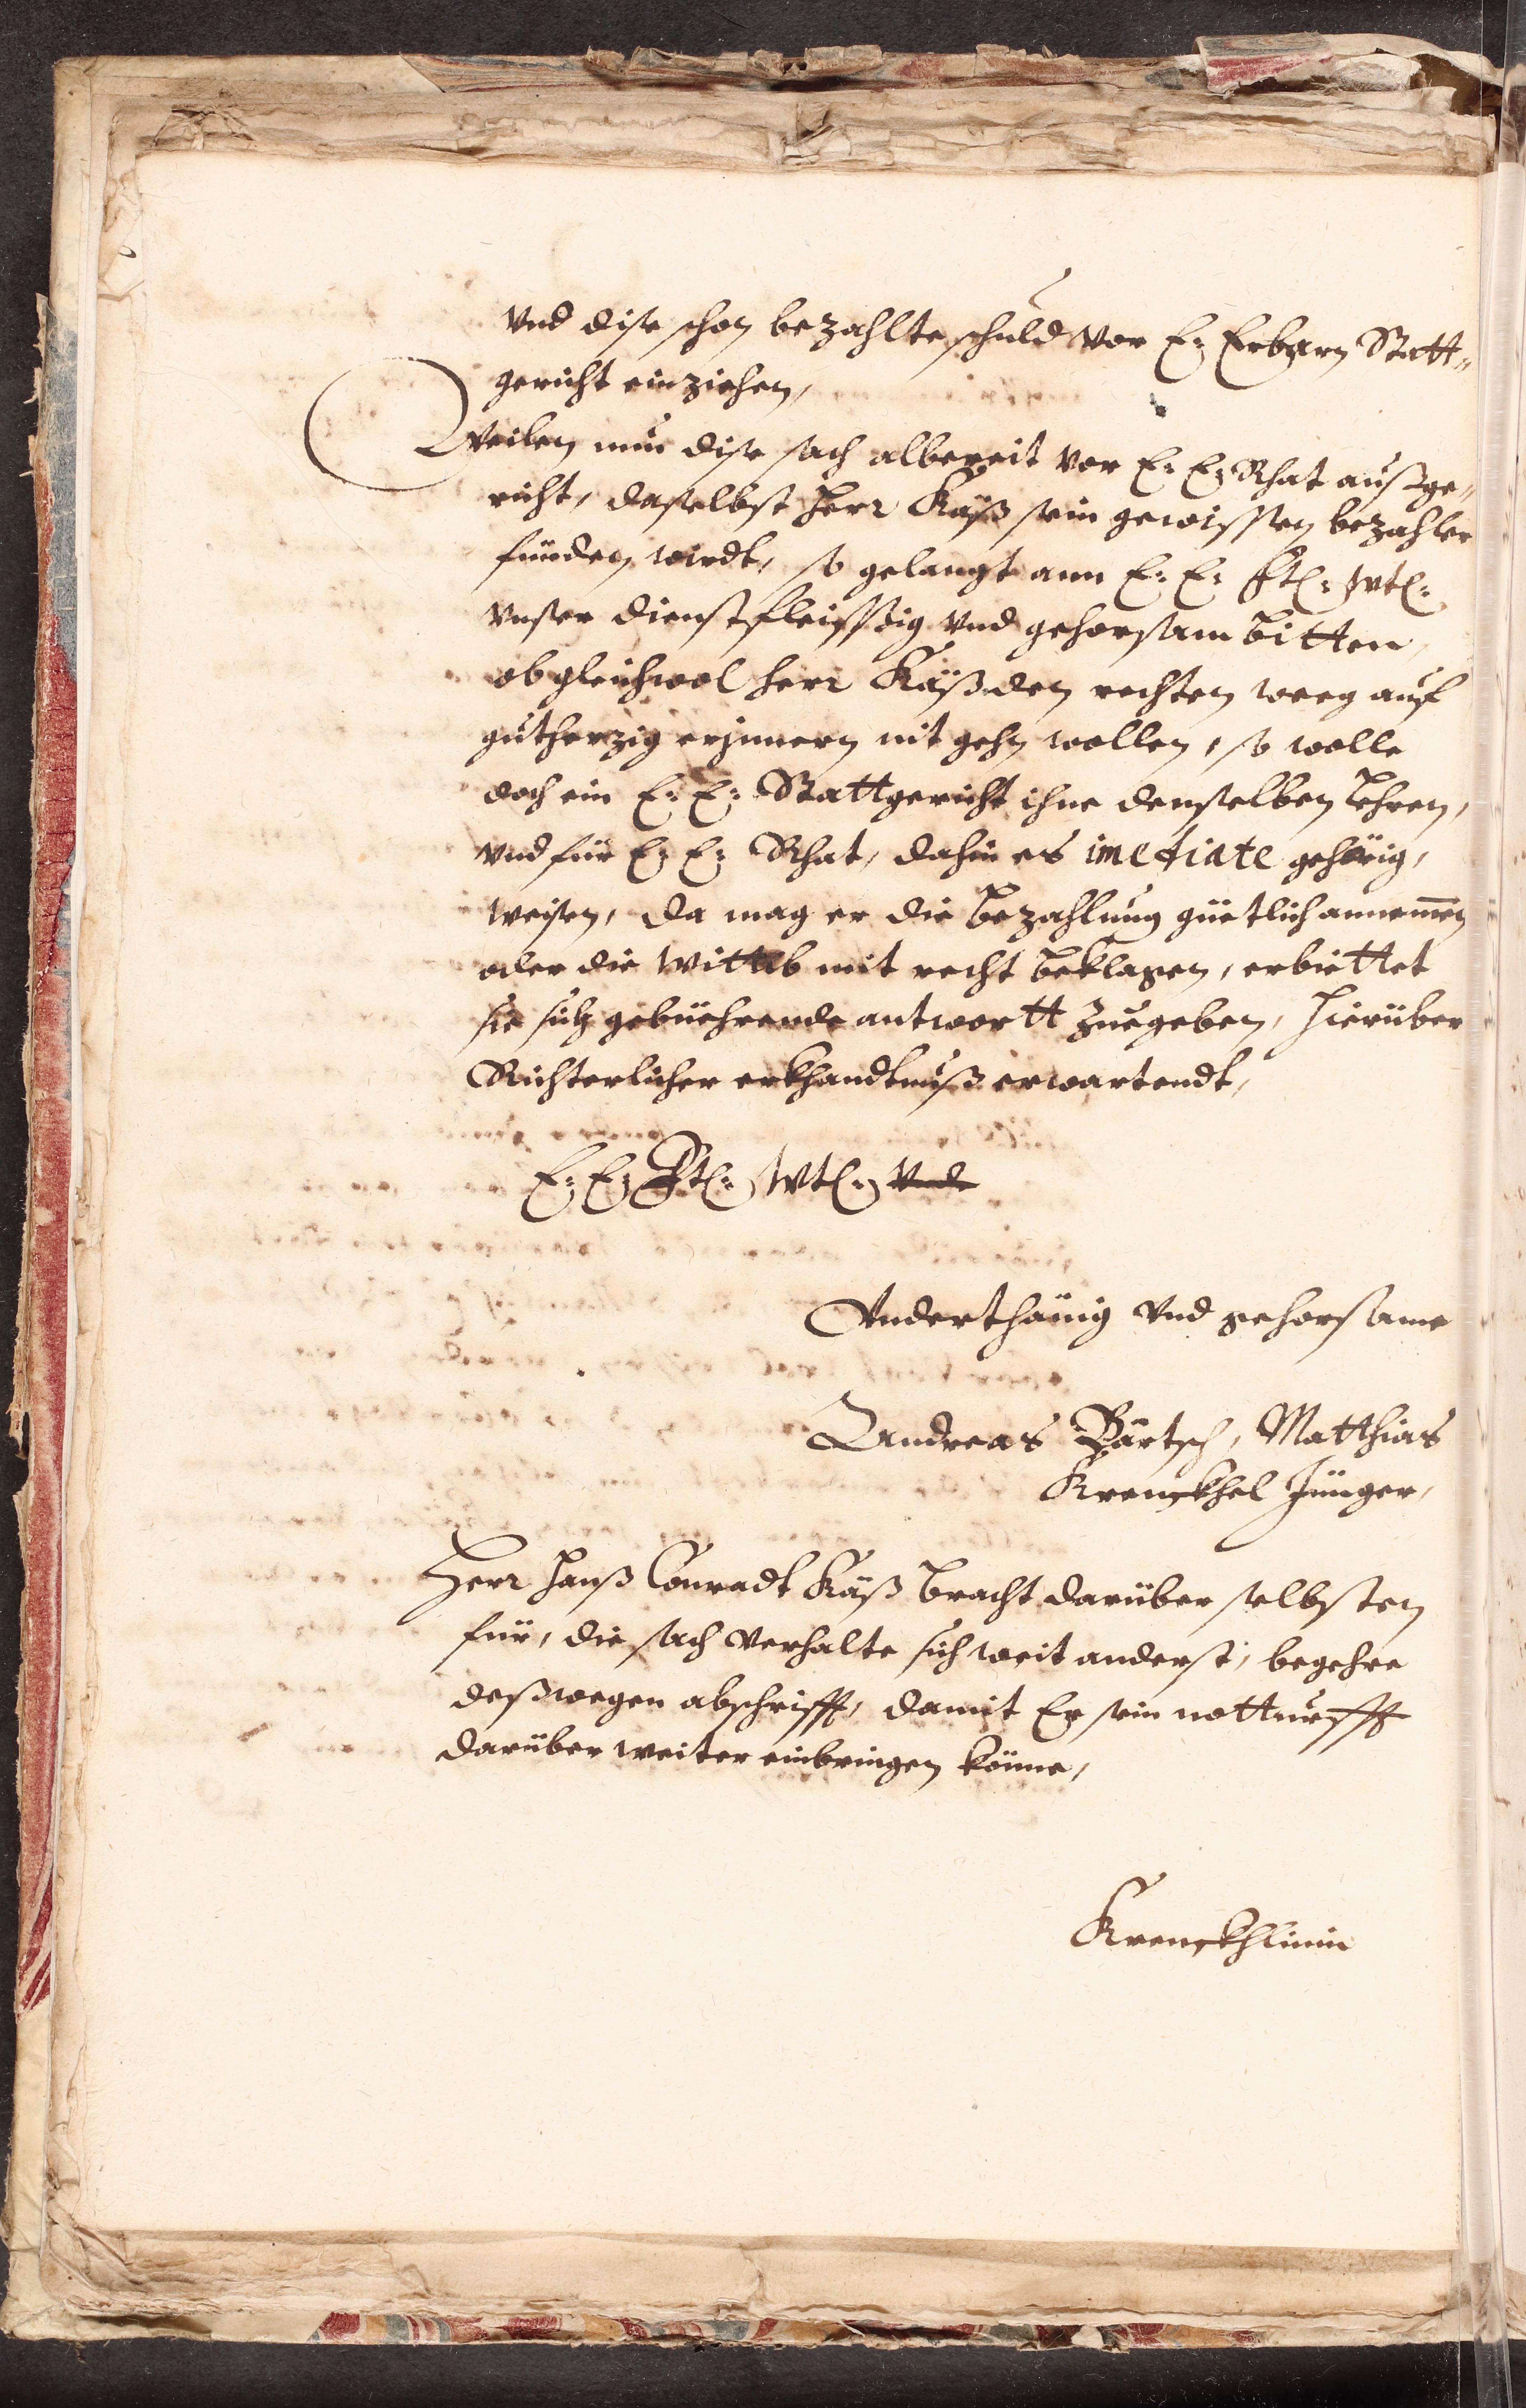 vnd dise schon bezahlte schuld vor E: Erbarn Statt„
gericht einziehen,
Weilen nun dise sach albereit vor E: E: Rhat außge„
richt, daselbst herr Käß sein gewissen bezahler
fünden wirdt, so gelangt ann E: E: Ft: Wt:
vnser dienstfleissig vnd gehorsam bitten,
obgleichwol herr Käß den rechten weeg auf
gutherzig erjnnern nit gehn wollen, so wolle
doch ein E: E: Stattgericht ihne denselben lehren,
vnd für E: E: Rhat, dahin es imediate gehörig,
weisen, da mag er die bezahlung güetlich annemen
oder die Wittib mit recht beklagen, erbiettet
sie sich gebüehrende antwortt zuegeben, hierüber
Richterlicher erkhandtnuß erwartendt,
E: E: Ft: Wt: vnd
Vnderthänig vnd gehorsame
Andreas Bartsch, Matthias
Krenckhel Jünger,
Herr hanß Conradt Käß bracht darüber selbsten
für, die sach verhalte sich weit anderst, begehre
deßwegen abschrifft, damit Er sein notturfft
darüber weiter einbringen könne,
Krenckhlinin